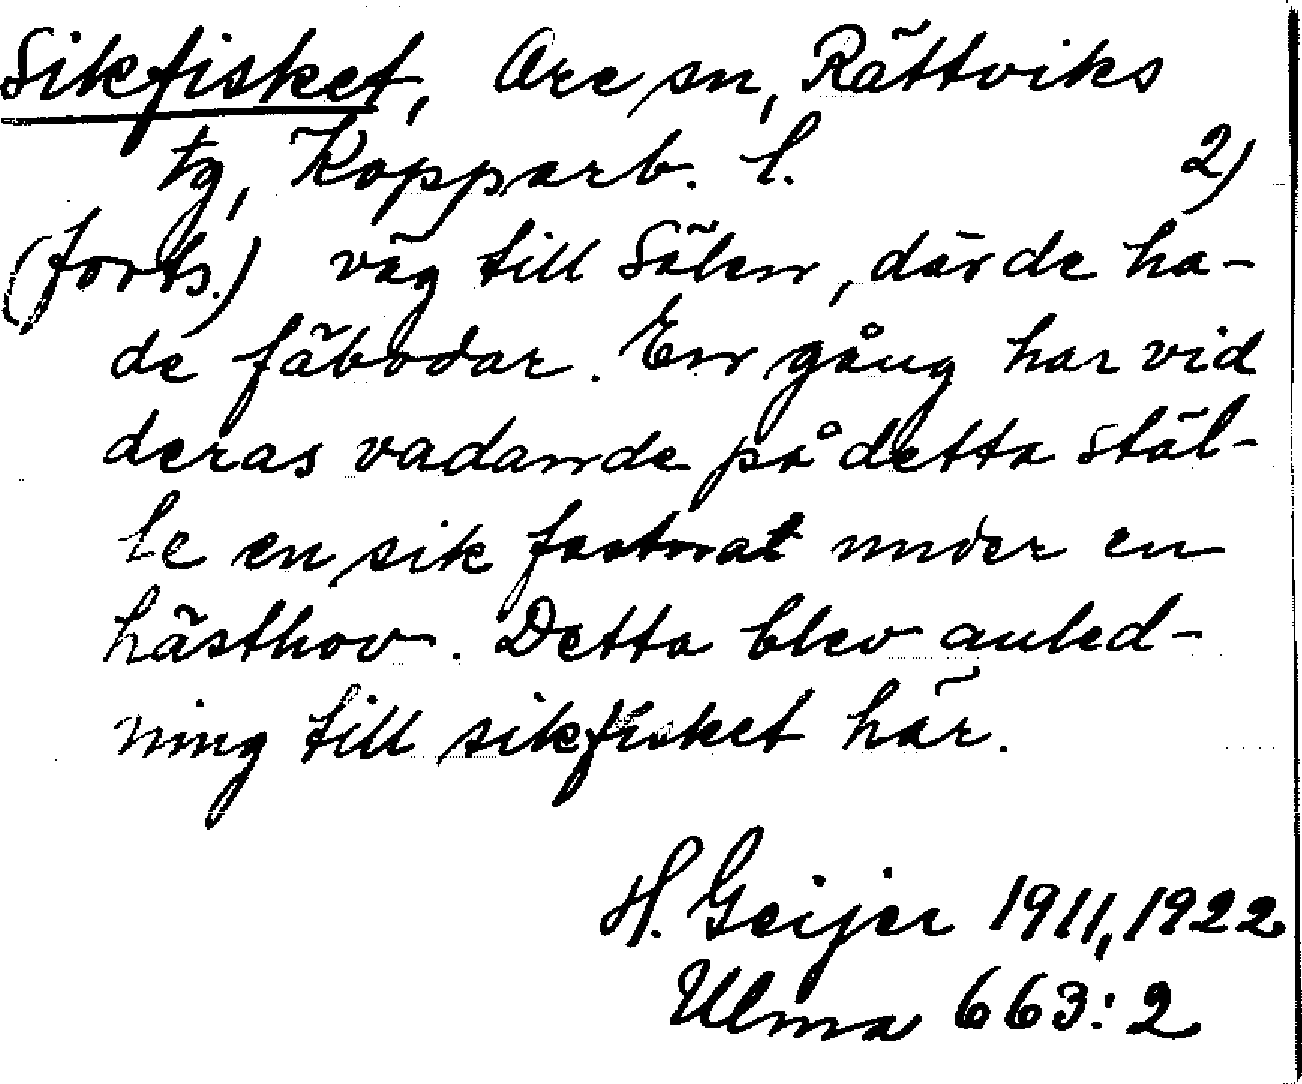 Sikfisket, Ore sn, Rättviks
tg, Kopparb. l. 2)
(forts.) väg till Sölen, där de ha-
de fäbodar. En gång har vid
deras vadande på detta stäl-
le en sik fastnat under en
hästhov. Detta blev anled-
ning till sikfisket här.
H. Geijer 1911, 1922
Ulma 663:2